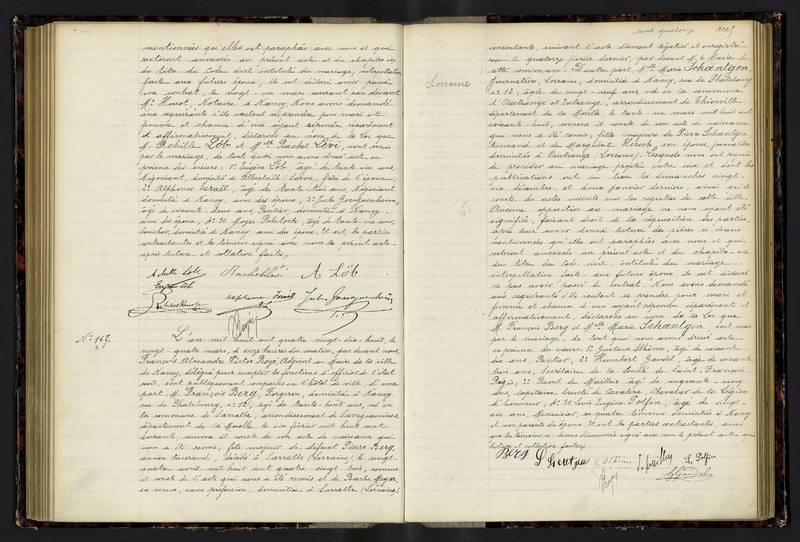 mentionnées qu'elles ont paraphées avec nous et qui
resteront annexées au présent acte et du chapitre six
du titre du Code civil intitulé du mariage, interpellation
faite aux futurs époux, ils ont déclaré avoir passé
un contrat, le vingt un mars courant par devant
Me Notaire à Nancy. Nous avons demandé
aux requérants s'ils veulent se prendre pour mari et
femme et chacun d'eux ayant répondu séparément
et affirmativement, déclarons au nom de la Loi que
M. Achille Löb et Mlle Rachel Lévi, sont unis
par le mariage, de tout quoi nous avons dressé acte en
présence des sieurs: 1° Eugène Löb, âgé de trente six ans
Négociant, domicilié à Albertville (Savoie), frère de l'époux
2° Alphonse âgé de trente trois ans, Négociant
domicilié à Nancy, ami des époux, 3° Jules Gougenheim,
âgé de soixante deux ans, Rentier, domicilié à Nancy,
ami des époux, & 4° Moyse âgé de trente six ans,
boucher, domicilié à Nancy, ami des époux. Et ont, les parties
contractantes et les témoins signé avec nous le présent acte
après lecture et collation faites,
A Löb
N° 167.
L'an mil huit cent quatre vingt-dix-huit, le
vingt-quatre mars, à onze heures du matin, par devant nous,
François Alexandre Victor Adjoint au Maire de la ville
de Nancy, délégué pour remplir les fonctions d'officier de l'état
civil, sont publiquement comparus en l'hôtel de ville, d'une
part M. François Berg, Forgeron, domicilié à Nancy,
rue de Phalsbourg, n° 12, âgé de trente-huit ans, né en
la commune de Sarralbe, arrondissement de Sarreguemines,
département de la Moselle, le six février mil huit cent
soixante, comme il conste de son acte de naissance qui
nous a été remis, fils majeur de défunt Pierre Berg,
ancien tisserand, décédé à Sarralbe (Lorraine), le vingt-
quatre avril mil huit cent quatre vingt trois, comme
il conste de l'acte qui nous a été remis et de Barbe Meyer,
sa veuve, sans profession, domiciliée à Sarralbe (Lorraine)
cent quatorze
Lorraine
consentante, suivant l'acte dûment légalisé et enregistré
reçu le quatorze février dernier, par devant M. le Maire de la
dite commune; D'autre part, Mlle Marie Schantgen,
Journalière, Lorraine, domiciliée à Nancy, rue de Phalsbourg
n° 12, âgée de vingt-neuf ans, née en la commune
d'Oeutrange et Entrange, arrondissement de Thionville
département de la Moselle, le trente un mars mil huit cent
soixante huit, comme il conste de son acte de naissance
qui nous a été remis, fille majeure de Pierre Schantgen
tisserand et de Marguerite Hirsch, son épouse, journalière
domiciliés à Oeutrange (Lorraine). Lesquels nous ont requis
de procéder au mariage projeté entre eux et dont les
publications ont eu lieu les dimanches vingt-
six décembre et deux janvier derniers, ainsi qu'il
conste des actes insérés sur les registres de cette ville.
Aucune opposition au mariage ne nous ayant été
signifiée, faisant droit à la réquisition des parties,
après leur avoir donné lecture des pièces ci dessus
mentionnées qu'elles ont paraphées avec nous et qui
resteront annexées au présent acte et du chapitre six
du titre du Code civil, intitulé du mariage
interpellation faite aux futurs époux, ils ont déclaré
ne pas avoir passé de contrat. Nous avons demandé
aux requérants s'ils veulent se prendre pour mari et
femme et chacun d'eux ayant répondu séparément et
affirmativement, déclarons au nom de la Loi que
M. François Berg et Mlle Marie Schantgen, sont unis
par le mariage, de tout quoi nous avons dressé acte
en présence des sieurs 1° Gustave âgé de soixante
dix ans, Rentier, 2° Humbert Gandel, âgé de soixante
trois ans, Secrétaire de la Société de Saint-François
Régis; 3° Raoul de Maillier âgé de cinquante cinq
ans, capitaine retraité de Cavalerie, Chevalier de la Légion
d'honneur, & 4° Louis Eugène Dolfin, âgé de vingt-
six ans, Menuisier, ces quatre témoins domiciliés à Nancy
et non parents des époux. Et ont les parties contractantes, ainsi
que les témoins ci dessus dénommés signé avec nous le présent acte après
lecture et collation faites
Berg